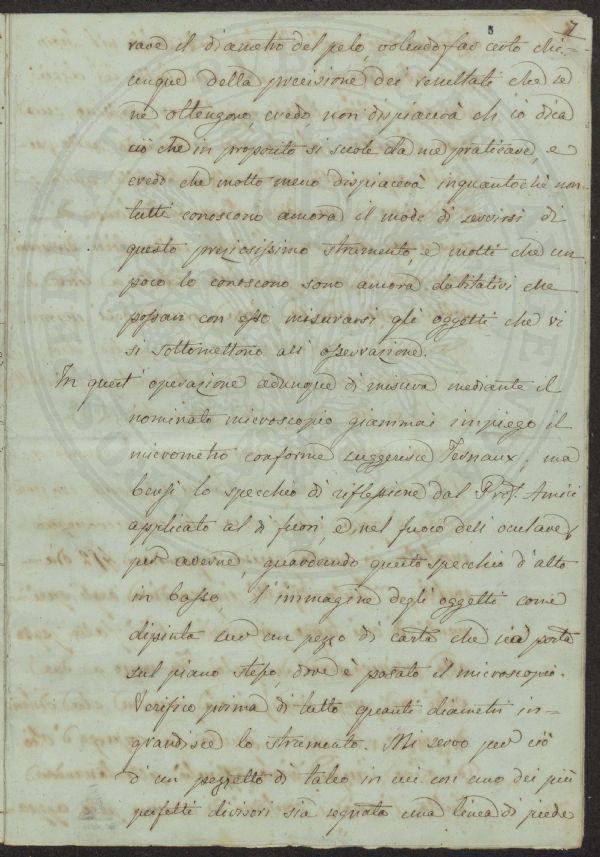 7
rare il diametro del pelo, volendo far certo chi=
unque della precisione dei resultati che se
ne ottengono, credo non dispiacerà ch'io dica
ciò che in proposito si suole da me praticare, e
credo che molto meno dispiacerà inquantochè non
tutti conoscono ancora il modo di servirsi di
questo preziosissimo strumento, e molti che un
poco lo conoscono sono ancora dubitativi che
possan con esso misurarsi gli oggetti che vi
si sottomettono all'osservazione.
In quest'operazione adunque di misura mediante il
nominato microscopio giammai impiego il
micrometro conforme suggerisce Ternaux, ma
bensì lo specchio di riflessione dal Prof. Amici
applicato al di fuori, e nel fuoco dell'oculare,
per averne, guardando questo specchio d'alto
in basso, l'immagine degli oggetti come
dipinta su un pezzo di carta che porta
sul piano stesso, dove è posato il microscopio.
Verifico prima di tutto quanti diametri in=
grandisce lo strumento. Mi servo per ciò
d'un pezzetto di talco in cui con uno dei più
perfetti divisori sia segnata una linea di piede